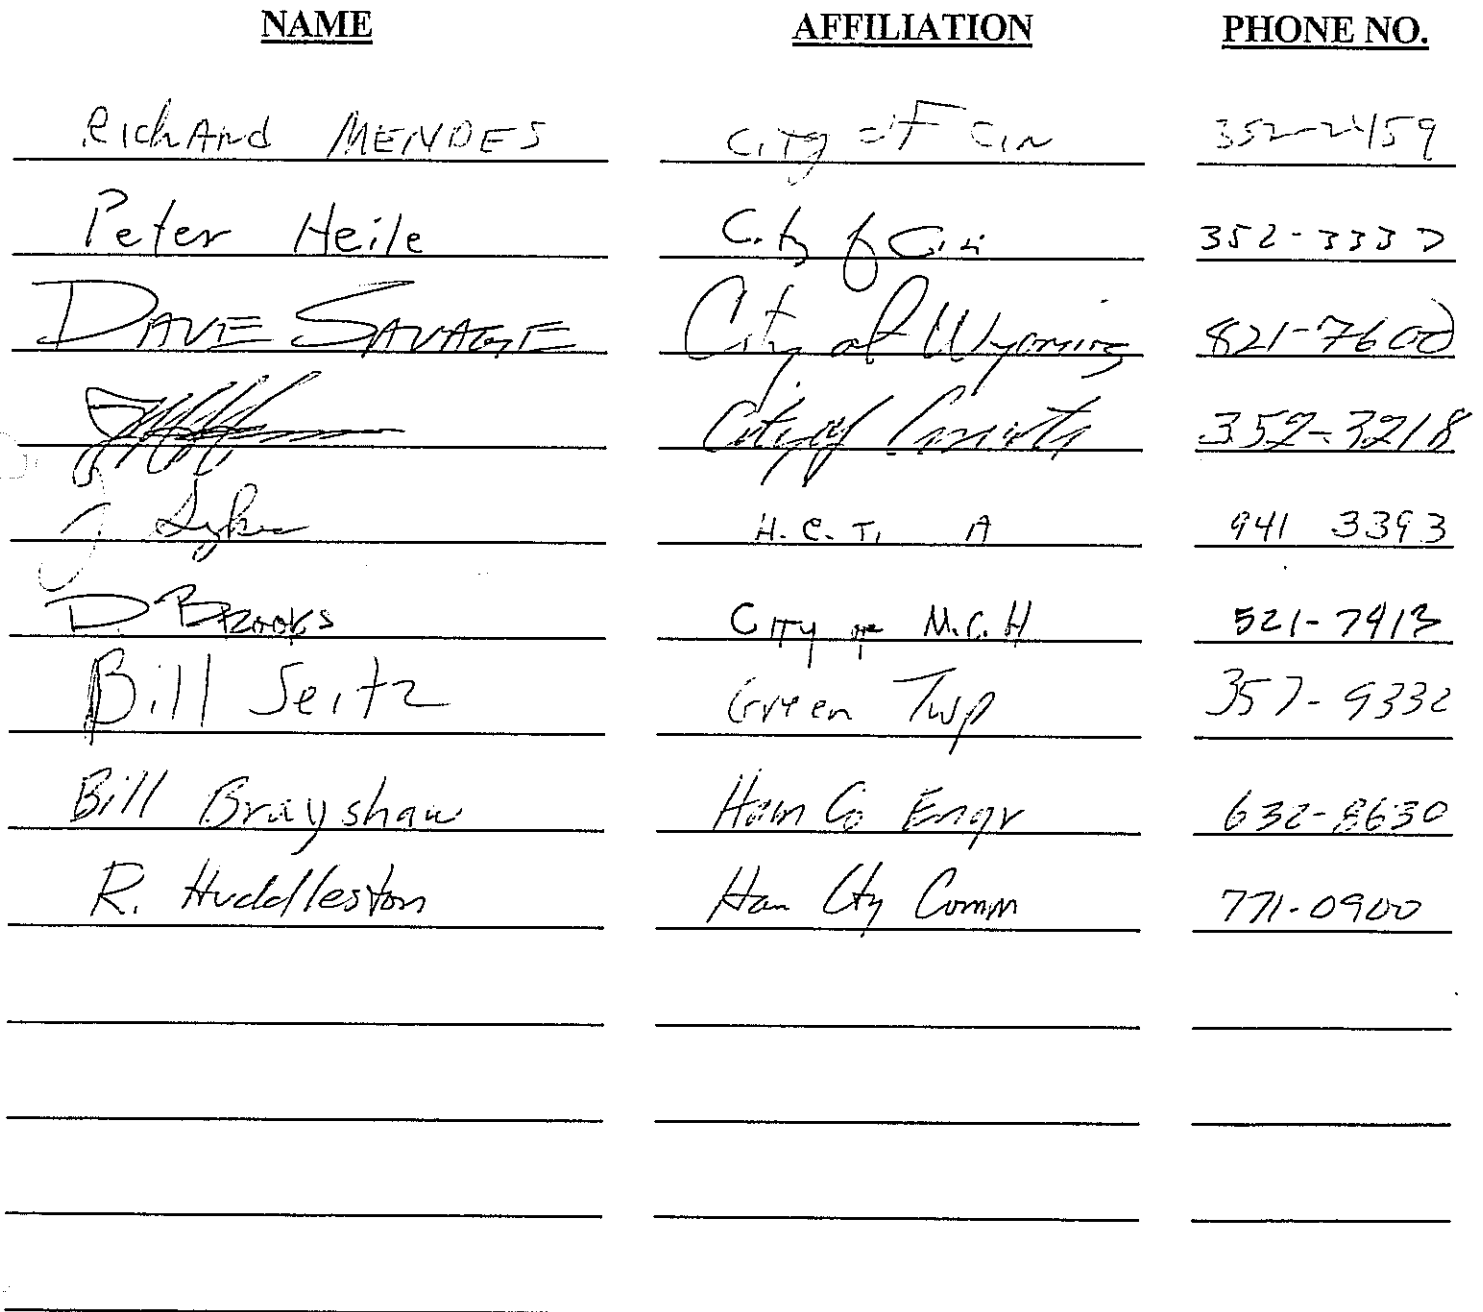 NAME AFFILIATION PHONE NO.
RichArd MENDES City oF Cin 352-2459
Peter Heile City of Cin 352-3332
DAVE SAVAGE City of Wyoming 821-7600
City of 352-3218
J Sykes H.C.T. A 941 3393
D BROOKS CITY OF M.C.H 521-7413
Bill Seitz Green Twp 357-9332
Bill Brayshaw Ham Co Engr 632-8630
R. Huddleston Ham Cty Comm 771-0900